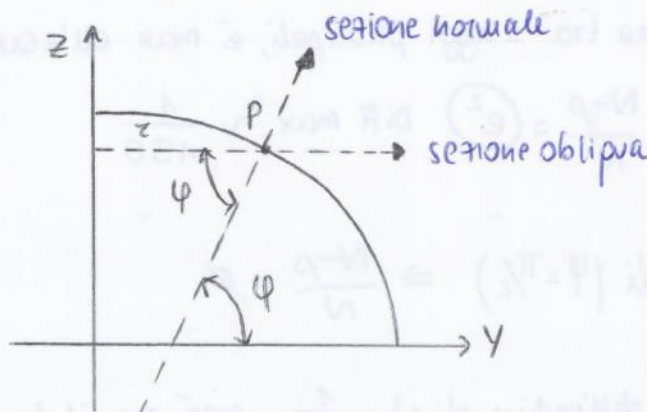 sezione normale
Z
P
r
sezione obliqua
φ
φ
Y